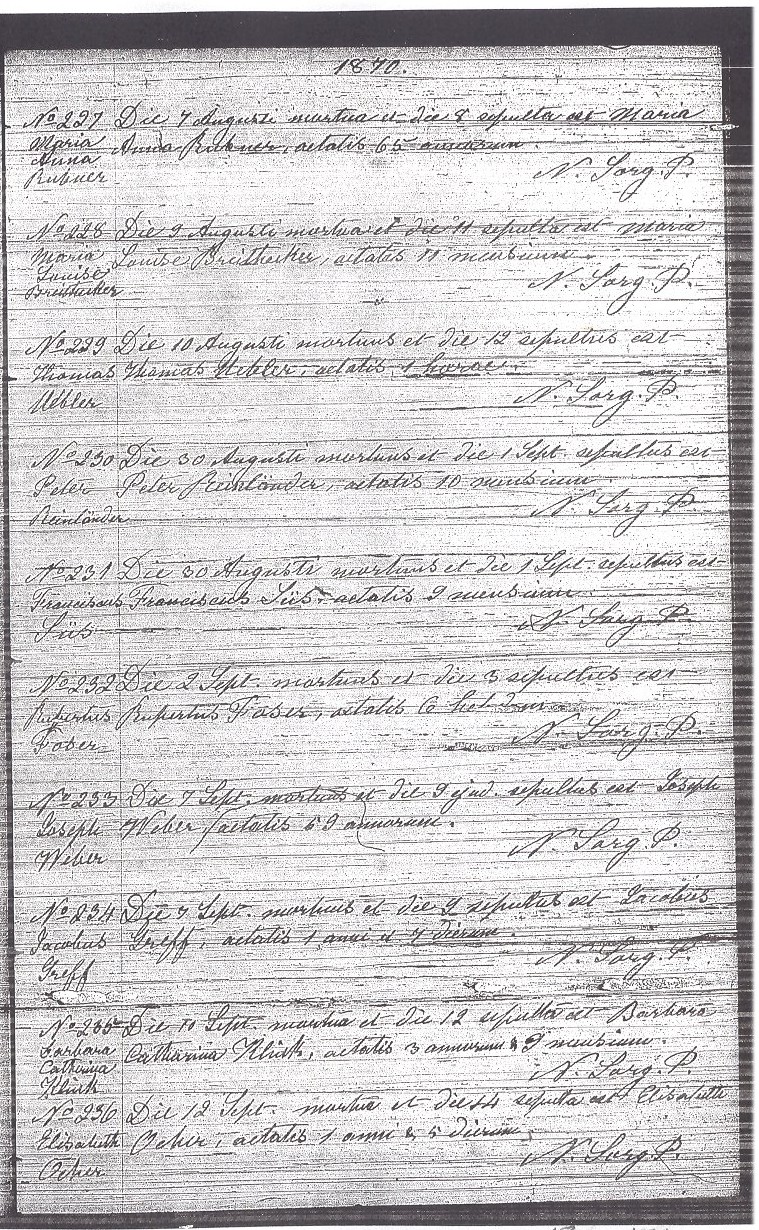 1870.
No 227 Die 7 Augusti mortua et die 8 sepulta est Maria
Maria Anna Rubner, aetatis 65 annorum.
Anna
Rubner N. Sorg. P.
No 228 Die 9 Augusti mortua et die 11 sepulta est Maria
Maria Louise Breithecker, aetatis 11 mensium.
Louise
Breithecker N. Sorg. P.
No 229 Die 10 Augusti mortuus et die 12 sepultus est
Thomas Thomas Uebler, aetatis 1 horae.
Uebler N. Sorg. P.
No 230 Die 30 Augusti mortuus et die 1 Sept. sepultus est
Peter Peter Reinländer, aetatis 10 mensium.
Reinländer N. Sorg. P.
No 231 Die 30 Augusti mortuus et die 1 Sept. sepultus est
Franciscus Franciscus Süs. aetatis 9 mensium.
Süs N. Sorg. P.
No 232 Die 2 Sept. mortuus et die 3 sepultus est
Rupertus Rupertus Foser, aetatis 6 hebdom.
Foser N. Sorg. P.
No 233 Die 7 Sept. mortuus et die 9 ejud. sepultus est Joseph
Joseph Weber, aetatis 59 annorum.
Weber N. Sorg. P.
No 234 Die 7 Sept. mortuus et die 9 sepultus est Jacobus
Jacobus Greff, aetatis 1 anni et 7 dierum.
Greff N. Sorg. P.
No 235 Die 10 Sept. mortua et die 12 sepulta est Barbara
Barbara Catharina Klink, aetatis 3 annorum & 9 mensium.
Catharina
Klink N. Sorg. P.
No 236 Die 12 Sept. mortua et die 14 sepulta est Elisabeth
Elisabeth Ocher, aetatis 1 anni & 5 dierum.
Ocher N. Sorg. P.